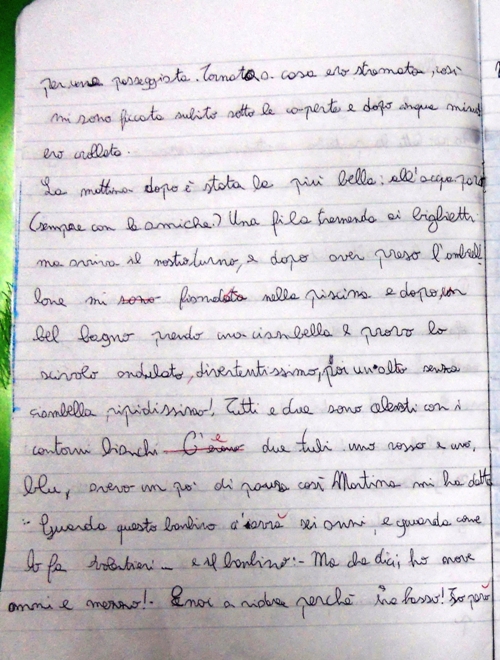 per una passeggiata. Tornata a casa ero stremata, così
mi sono ficcata subito sotto le coperte e dopo cinque minuti
ero crollata.
La mattina dopo è stata la più bella: all'acquapark
(sempre con le amiche!) Una fila tremenda ai biglietti
ma arriva il nostro turno, e dopo aver preso l'ombrel-
lone mi fiondata nella piscina e dopo un
bel bagno prendo una ciambella e provo lo
scivolo ondulato, divertentissimo, poi un alto senza
ciambella, ripidissimo! Tutti e due sono celesti con i
contorni bianchi. C'è due tubi uno rosso e uno
blu, avevo un po' di paura così Martina mi ha detto
:- Guarda questo bambino avrà sei anni, e guarda come
lo fa volentieri _ e il bambino:- Ma che dici, ho nove
anni e mezzo!- E noi a ridere perché era basso! Io però